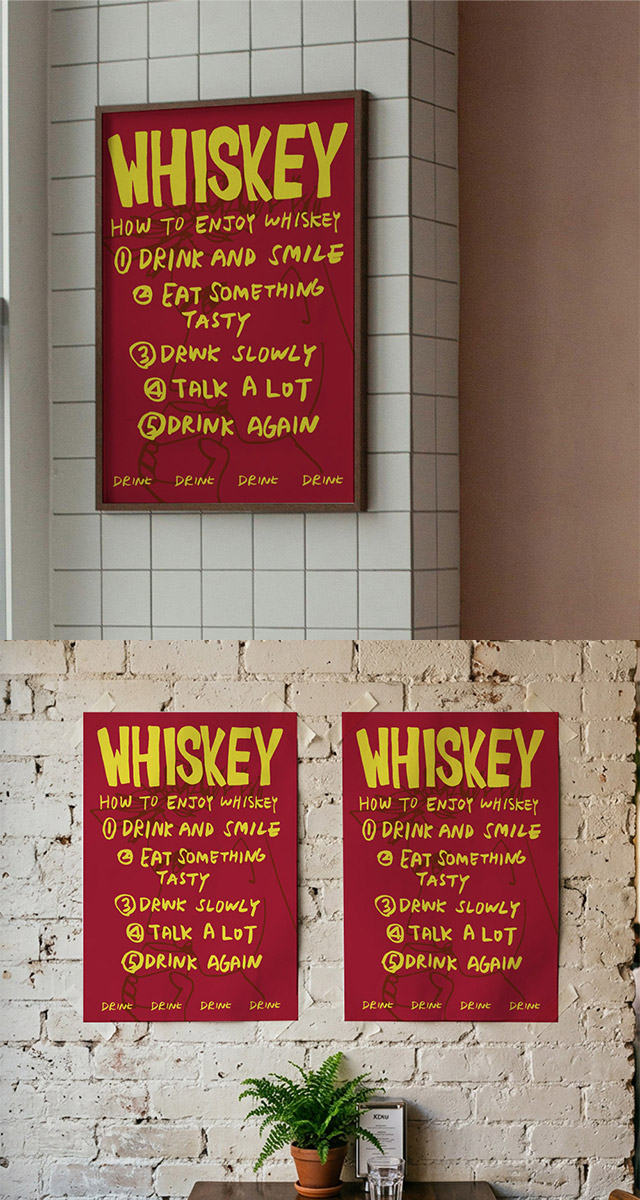 WHISKEY
HOW TO ENJOY WHISKEY
① DRINK AND SMILE
② EAT SOMETHING
TASTY
③ DRINK SLOWLY
④ TALK A LOT
⑤ DRINK AGAIN
DRINK DRINK DRINK DRINK
WHISKEY
HOW TO ENJOY WHISKEY
① DRINK AND SMILE
② EAT SOMETHING
TASTY
③ DRINK SLOWLY
④ TALK A LOT
⑤ DRINK AGAIN
DRINK DRINK DRINK DRINK
WHISKEY
HOW TO ENJOY WHISKEY
① DRINK AND SMILE
② EAT SOMETHING
TASTY
③ DRINK SLOWLY
④ TALK A LOT
⑤ DRINK AGAIN
DRINK DRINK DRINK DRINK